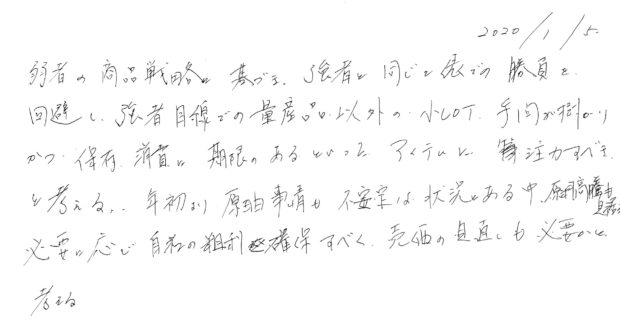 2020/1/5.
弱者の商品戦略に基づき、強者と同じ土俵での勝負を
回避し、強者目線での量産品以外の小LOT、手間が掛かり
かつ、保存、消費に期限のあるといったアイテムに注力すべき
と考える。年初より原油事情も不安定な状況にある中、原油高騰も
必要に応じ自社の粗利を確保すべく、売価の見直しも必要かと
考える